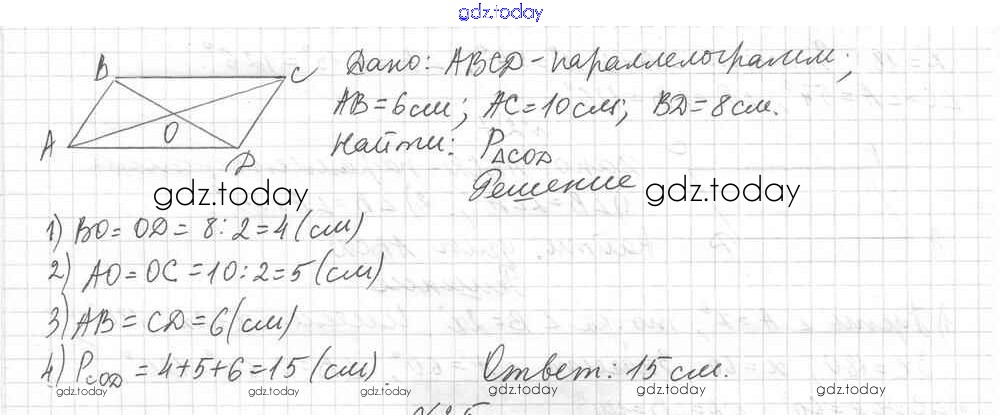 gdz.today
B C
A O D
Дано: ABCD - параллелограмм;
AB = 6 см; AC = 10 см; BD = 8 см.
Найти: P△COD
Решение
gdz.today gdz.today
1) BO = OD = 8 : 2 = 4 (см)
2) AO = OC = 10 : 2 = 5 (см)
3) AB = CD = 6 (см)
4) PCOD = 4 + 5 + 6 = 15 (см). Ответ: 15 см.
gdz.today gdz.today gdz.today gdz.today gdz.today